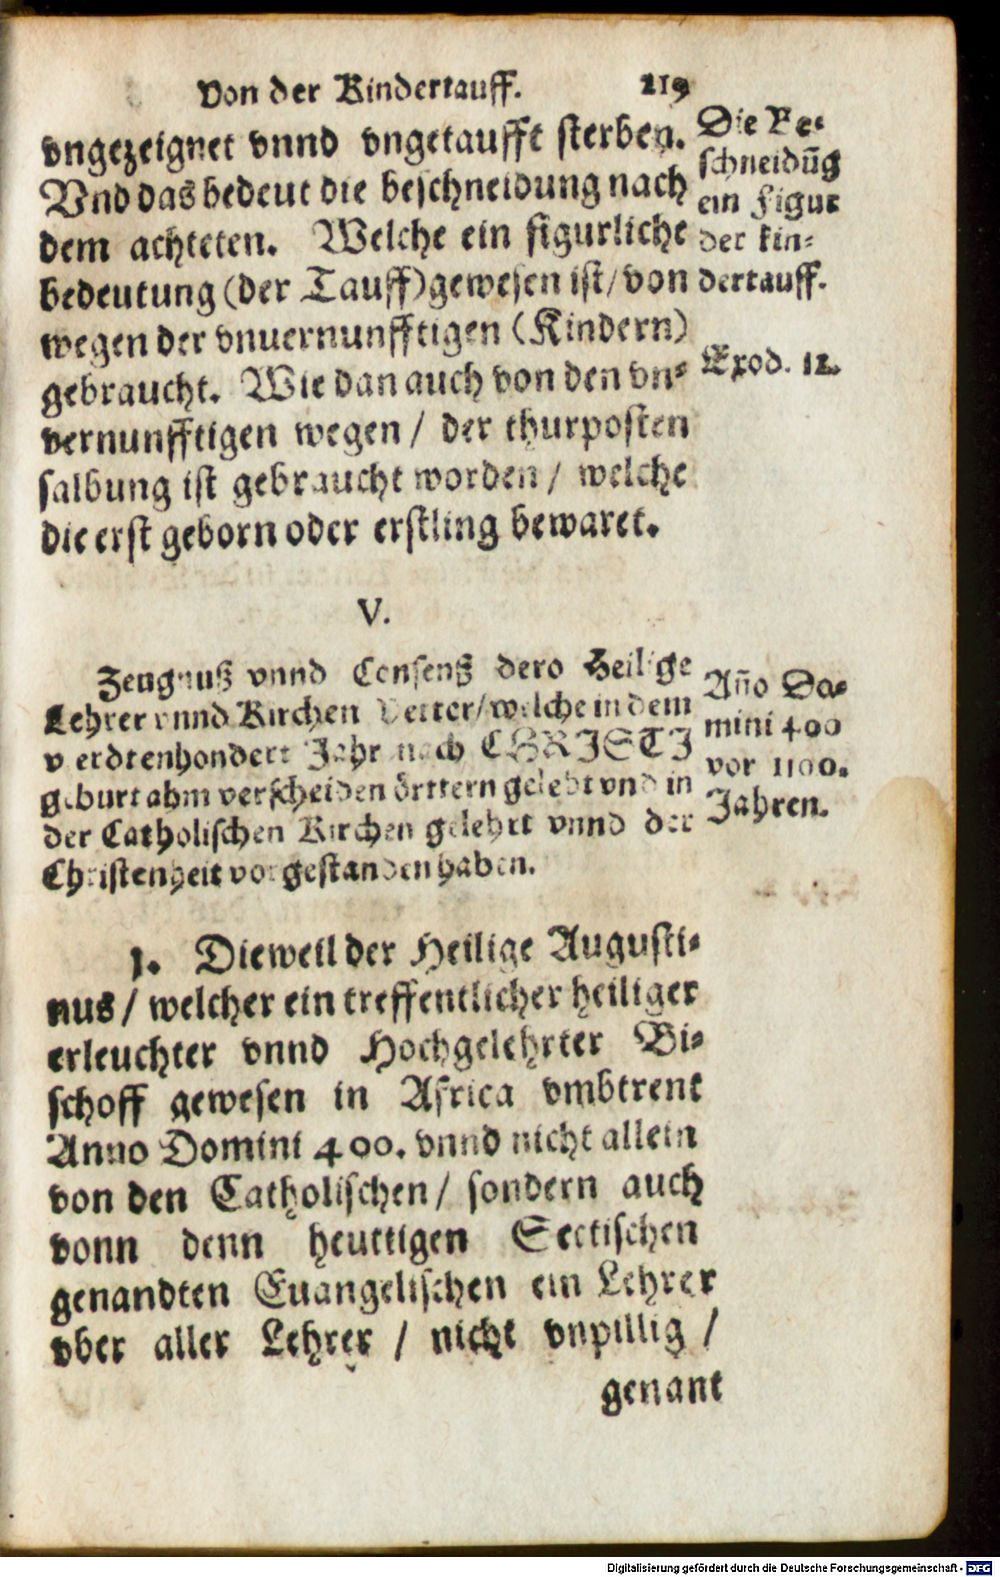 Von der Kindertauff. 219
vngezeignet vnnd vngetaufft sterben.
Vnd das bedeut die beschneidung nach
dem achteten. Welche ein figurliche
bedeutung (der Tauff) gewesen ist / von
wegen der vnuernunfftigen (Kindern)
gebraucht. Wie dan auch von den vn-
vernunfftigen wegen / der thurposten
salbung ist gebraucht worden / welche
die erst geborn oder erstling bewaret.
Die Be-
schneidũg
ein Figur
der kin-
dertauff.
Exod. 12.
V.
Zeugnuß vnnd Consenß dero Heilige
Lehrer vnnd Kirchen Vetter / welche in dem
vierdtenhondert Jahr nach CHRISTI
geburt ahm verscheiden örttern gelebt vnd in
der Catholischen Kirchen gelehrt vnnd der
Christenheit vorgestanden haben.
Año Do-
mini 400
vor 1100.
Jahren.
1. Dieweil der Heilige Augusti-
nus / welcher ein treffentlicher heiliger
erleuchter vnnd Hochgelehrter Bi-
schoff gewesen in Africa vmbtrent
Anno Domini 400. vnnd nicht allein
von den Catholischen / sondern auch
vonn denn heuttigen Sectischen
genandten Euangelischen ein Lehrer
vber aller Lehrer / nicht vnpillig /
genant
Digitalisierung gefördert durch die Deutsche Forschungsgemeinschaft - DFG